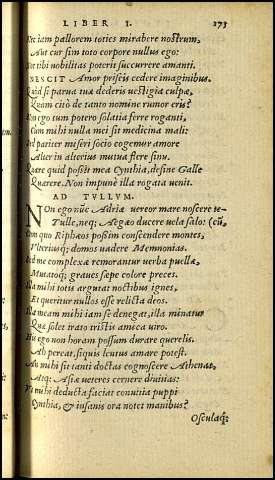 LIBER I. 273
Nec iam pallorem toties mirabere nostrum,
Aut cur sim toto corpore nullus ego:
Nec tibi nobilitas poterit succurrere amanti.
NESCIT Amor priscis cedere imaginibus.
Quid si parua tuæ dederis uestigia culpæ,
Quam citò de tanto nomine rumor eris?
Non ego tum potero solatia ferre roganti,
Cum mihi nulla mei sit medicina mali:
Sed pariter miseri socio cogemur amore
Alter in alterius mutua flere sinu.
Quare quid possit mea Cynthia, desine Galle
Quærere. Non impunè illa rogata uenit.
AD TVLLVM.
NOn ego nũc Adriæ uereor mare noscere te-
Tulle, neq; Aegæo ducere uela salo: (cũ,
Cum quo Riphæos possim conscendere montes,
Vlteriusq; domos uadere Memnonias.
Sed me complexæ remorantur uerba puellæ,
Mutatoq; graues sæpe colore preces.
Illa mihi totis argutat noctibus ignes,
Et queritur nullos esse relicta deos.
Illa meam mihi iam se denegat, illa minatur
Quæ solet irato tristis amica uiro.
His ego non horam possum durare querelis.
Ah pereat, siquis lentus amare potest.
An mihi sit tanti doctas cognoscere Athenas,
Atq; Asiæ ueteres cernere diuitias:
Vt mihi deducta faciat conuitia puppi
Cynthia, & insanis ora notet manibus?
Osculaq;